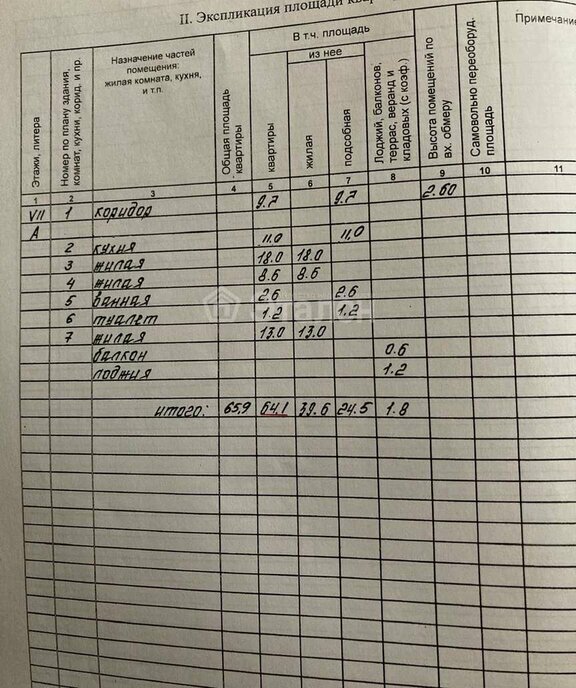 II. Экспликация площади
Этажи, литера
Номер по плану здания, комнат, кухни, корид. и пр.
Назначение частей помещения: жилая комната, кухня, и т.п.
Общая площадь квартиры
В т.ч. площадь
из нее
квартиры
жилая
подсобная
Лоджий, балконов, террас, веранд и кладовых (с коэф.)
Высота помещений по вх. обмеру
Самовольно переоборуд. площадь
Примечание
1 2 3 4 5 6 7 8 9 10 11
VII 1 коридор 9.7 9.7 2.60
А
2 кухня 11.0 11.0
3 жилая 18.0 18.0
4 жилая 8.6 8.6
5 ванная 2.6 2.6
6 туалет 1.2 1.2
7 жилая 13.0 13.0
балкон 0.6
лоджия 1.2
итого: 65,9 64,1 39.6 24.5 1.8